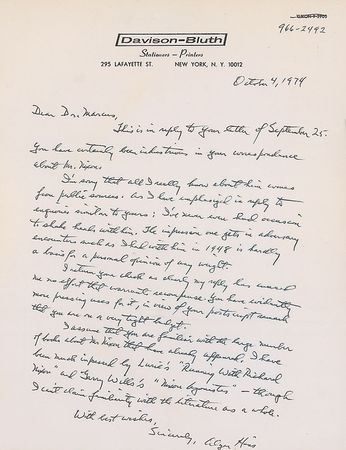 GRAMERCY 3-3900
966-2492
Davison-Bluth
Stationers – Printers
295 LAFAYETTE ST. NEW YORK, N. Y. 10012
October 4, 1974
Dear Dr. Marcus,
This is in reply to your letter of September 25.
You have certainly been industrious in your correspondence
about Mr. Nixon.
I'm sorry that all I really know about him comes
from public sources. As I have emphasized in reply to
enquiries similar to yours: I've never even had occasion
to shake hands with him. The impression one gets in adversary
encounters such as I had with him in 1948 is hardly
a basis for a personal opinion of any weight.
I return your check as clearly my reply has caused
me no effort that warrants recompense. You have evidently
more pressing uses for it, in view of your postscript remark
that you are on a very tight budget.
I assume that you are familiar with the large number
of books about Mr. Nixon that have already appeared. I have
been much impressed by Lurie's "Running With Richard
Nixon" and Garry Wills's "Nixon Agonistes" – though
I can't claim familiarity with the literature as a whole.
With best wishes,
Sincerely, Alger Hiss